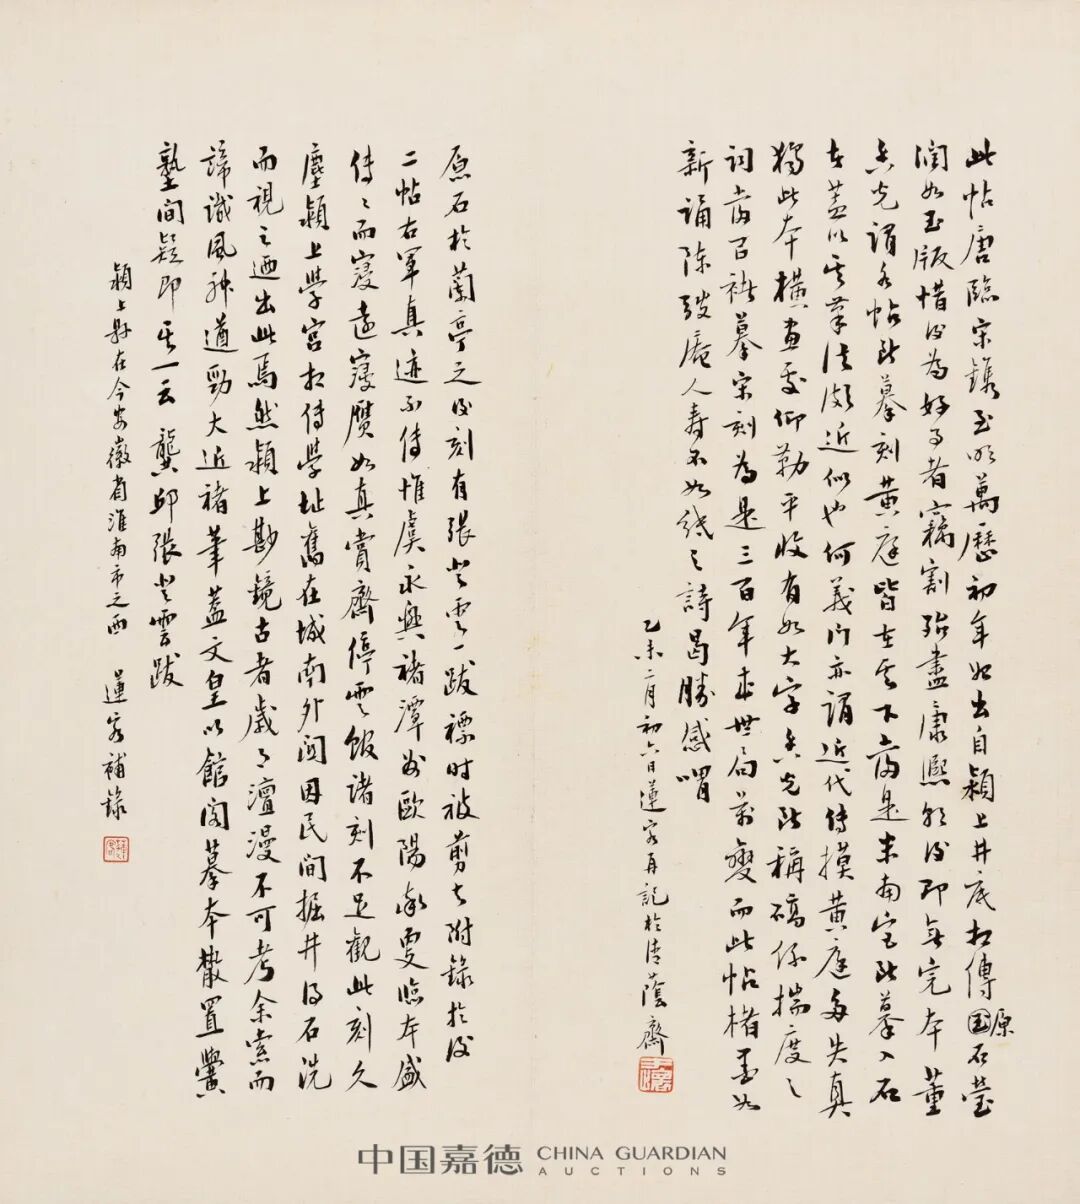 此帖唐臨宋鐫至明萬歷初年始出自潁上井底相傳原石瑩
潤如玉版惜後為好事者竊割殆盡康熙以後即無完本董
香光謂各帖所摹刻黃庭皆在其下
蓋以其筆法頗近似也何義門亦謂近代傳摸黃庭多失真
獨此本橫畫仰勒平收有如大字香光所稱稿係揣度之
詞當是褚摹宋刻為是三百年來世局萬變而此帖楮墨如
新誦陳弢庵人壽不如紙之詩曷勝感喟
乙未二月初六日蓮客再記於清蔭齋
原石於蘭亭之後刻有張登雲一跋裱時被剪去附錄於後
二帖右軍真迹不傳惟虞永興褚潭州歐陽率更臨本盛
傳傳而寖遠寖贗如真賞齋停雲館諸刻不足觀此刻久
塵潁上學宮相傳學址舊在城南外關因民間掘井得石洗
而視之迺出此焉然潁上勘鏡古者歲久漫不可考余索而
諦識風神遒勁大近褚筆蓋文皇以館閣摹本散置黌
塾間疑即其一云龔邱張登雲跋
潁上縣在今安徽省淮南市之西 蓮客補錄
中国嘉德 CHINA GUARDIAN
AUCTIONS